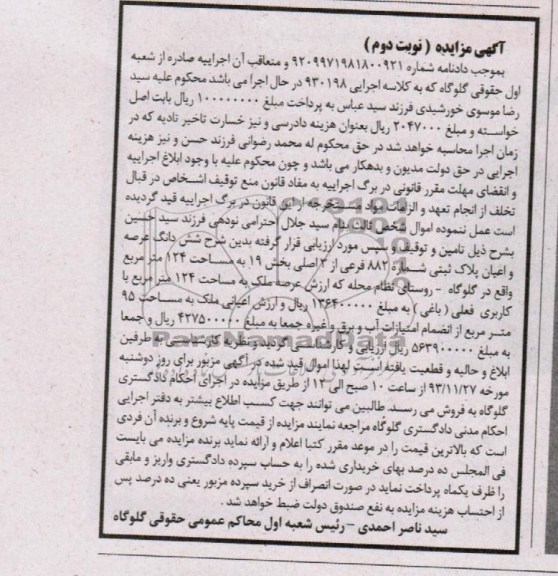 آگهی مزایده ( نوبت دوم )
بموجب دادنامه شماره ۹۲۰۹۹۷۱۹۸۱۸۰۰۹۲۱ و متعاقب آن اجراییه صادره از شعبه
اول حقوقی گلوگاه که به کلاسه اجرایی ۹۳۰۱۹۸ در حال اجرا می باشد محکوم علیه سید
رضا موسوی خورشیدی فرزند سید عباس به پرداخت مبلغ ۱۰۰۰۰۰۰۰۰ ریال بابت اصل
خواسته و مبلغ ۲۰۴۷۰۰۰ ریال بعنوان هزینه دادرسی و نیز خسارت تاخیر تادیه که در
زمان اجرا محاسبه خواهد شد در حق محکوم له محمد رضوانی فرزند حسن و نیز هزینه
اجرایی در حق دولت مدیون و بدهکار می باشد و چون محکوم علیه با وجود ابلاغ اجراییه
و انقضای مهلت مقرر قانونی در برگ اجراییه به مفاد قانون منع توقیف اشخاص در قبال
تخلف از انجام تعهد و الزامات مواد مستخرجه از این قانون در برگ اجراییه قید گردیده
است عمل ننموده اموال شخص ثالث بنام سید جلال احترامی نودهی فرزند سید حسین
بشرح ذیل تامین و توقیف و سپس مورد ارزیابی قرار گرفته بدین شرح شش دانگ عرصه
و اعیان پلاک ثبتی شماره ۸۸۲ فرعی از ۳ اصلی بخش ۱۹ به مساحت ۱۲۴ متر مربع
واقع در گلوگاه - روستای نظام محله که ارزش عرصه ملک به مساحت ۱۲۴ متر مربع با
کاربری فعلی ( باغی ) به مبلغ ۱۳۶۴۰۰۰۰۰ ریال و ارزش اعیانی ملک به مساحت ۹۵
متر مربع از انضمام امتیازات آب و برق و غیره جمعا به مبلغ ۴۲۷۵۰۰۰۰۰ ریال و جمعا
به مبلغ ۵۶۳۹۰۰۰۰۰ ریال ارزیابی و کارشناسی گردیده نظریه کارشناسی به طرفین
ابلاغ و حالیه و قطعیت یافته است لهذا اموال قید شده در آگهی مزبور برای روز دوشنبه
مورخه ۹۳/۱۱/۲۷ از ساعت ۱۰ صبح الی ۱۲ از طریق مزایده در اجرای احکام دادگستری
گلوگاه به فروش می رسد طالبین می توانند جهت کسب اطلاع بیشتر به دفتر اجرایی
احکام مدنی دادگستری گلوگاه مراجعه نمایند مزایده از قیمت پایه شروع و برنده آن فردی
است که بالاترین قیمت را در موعد مقرر کتبا اعلام و ارائه نماید برنده مزایده می بایست
فی المجلس ده درصد بهای خریداری شده را به حساب سپرده دادگستری واریز و مابقی
را ظرف یکماه پرداخت نماید در صورت انصراف از خرید سپرده مزبور یعنی ده درصد پس
از احتساب هزینه مزایده به نفع صندوق دولت ضبط خواهد شد .
سید ناصر احمدی - رئیس شعبه اول محاکم عمومی حقوقی گلوگاه